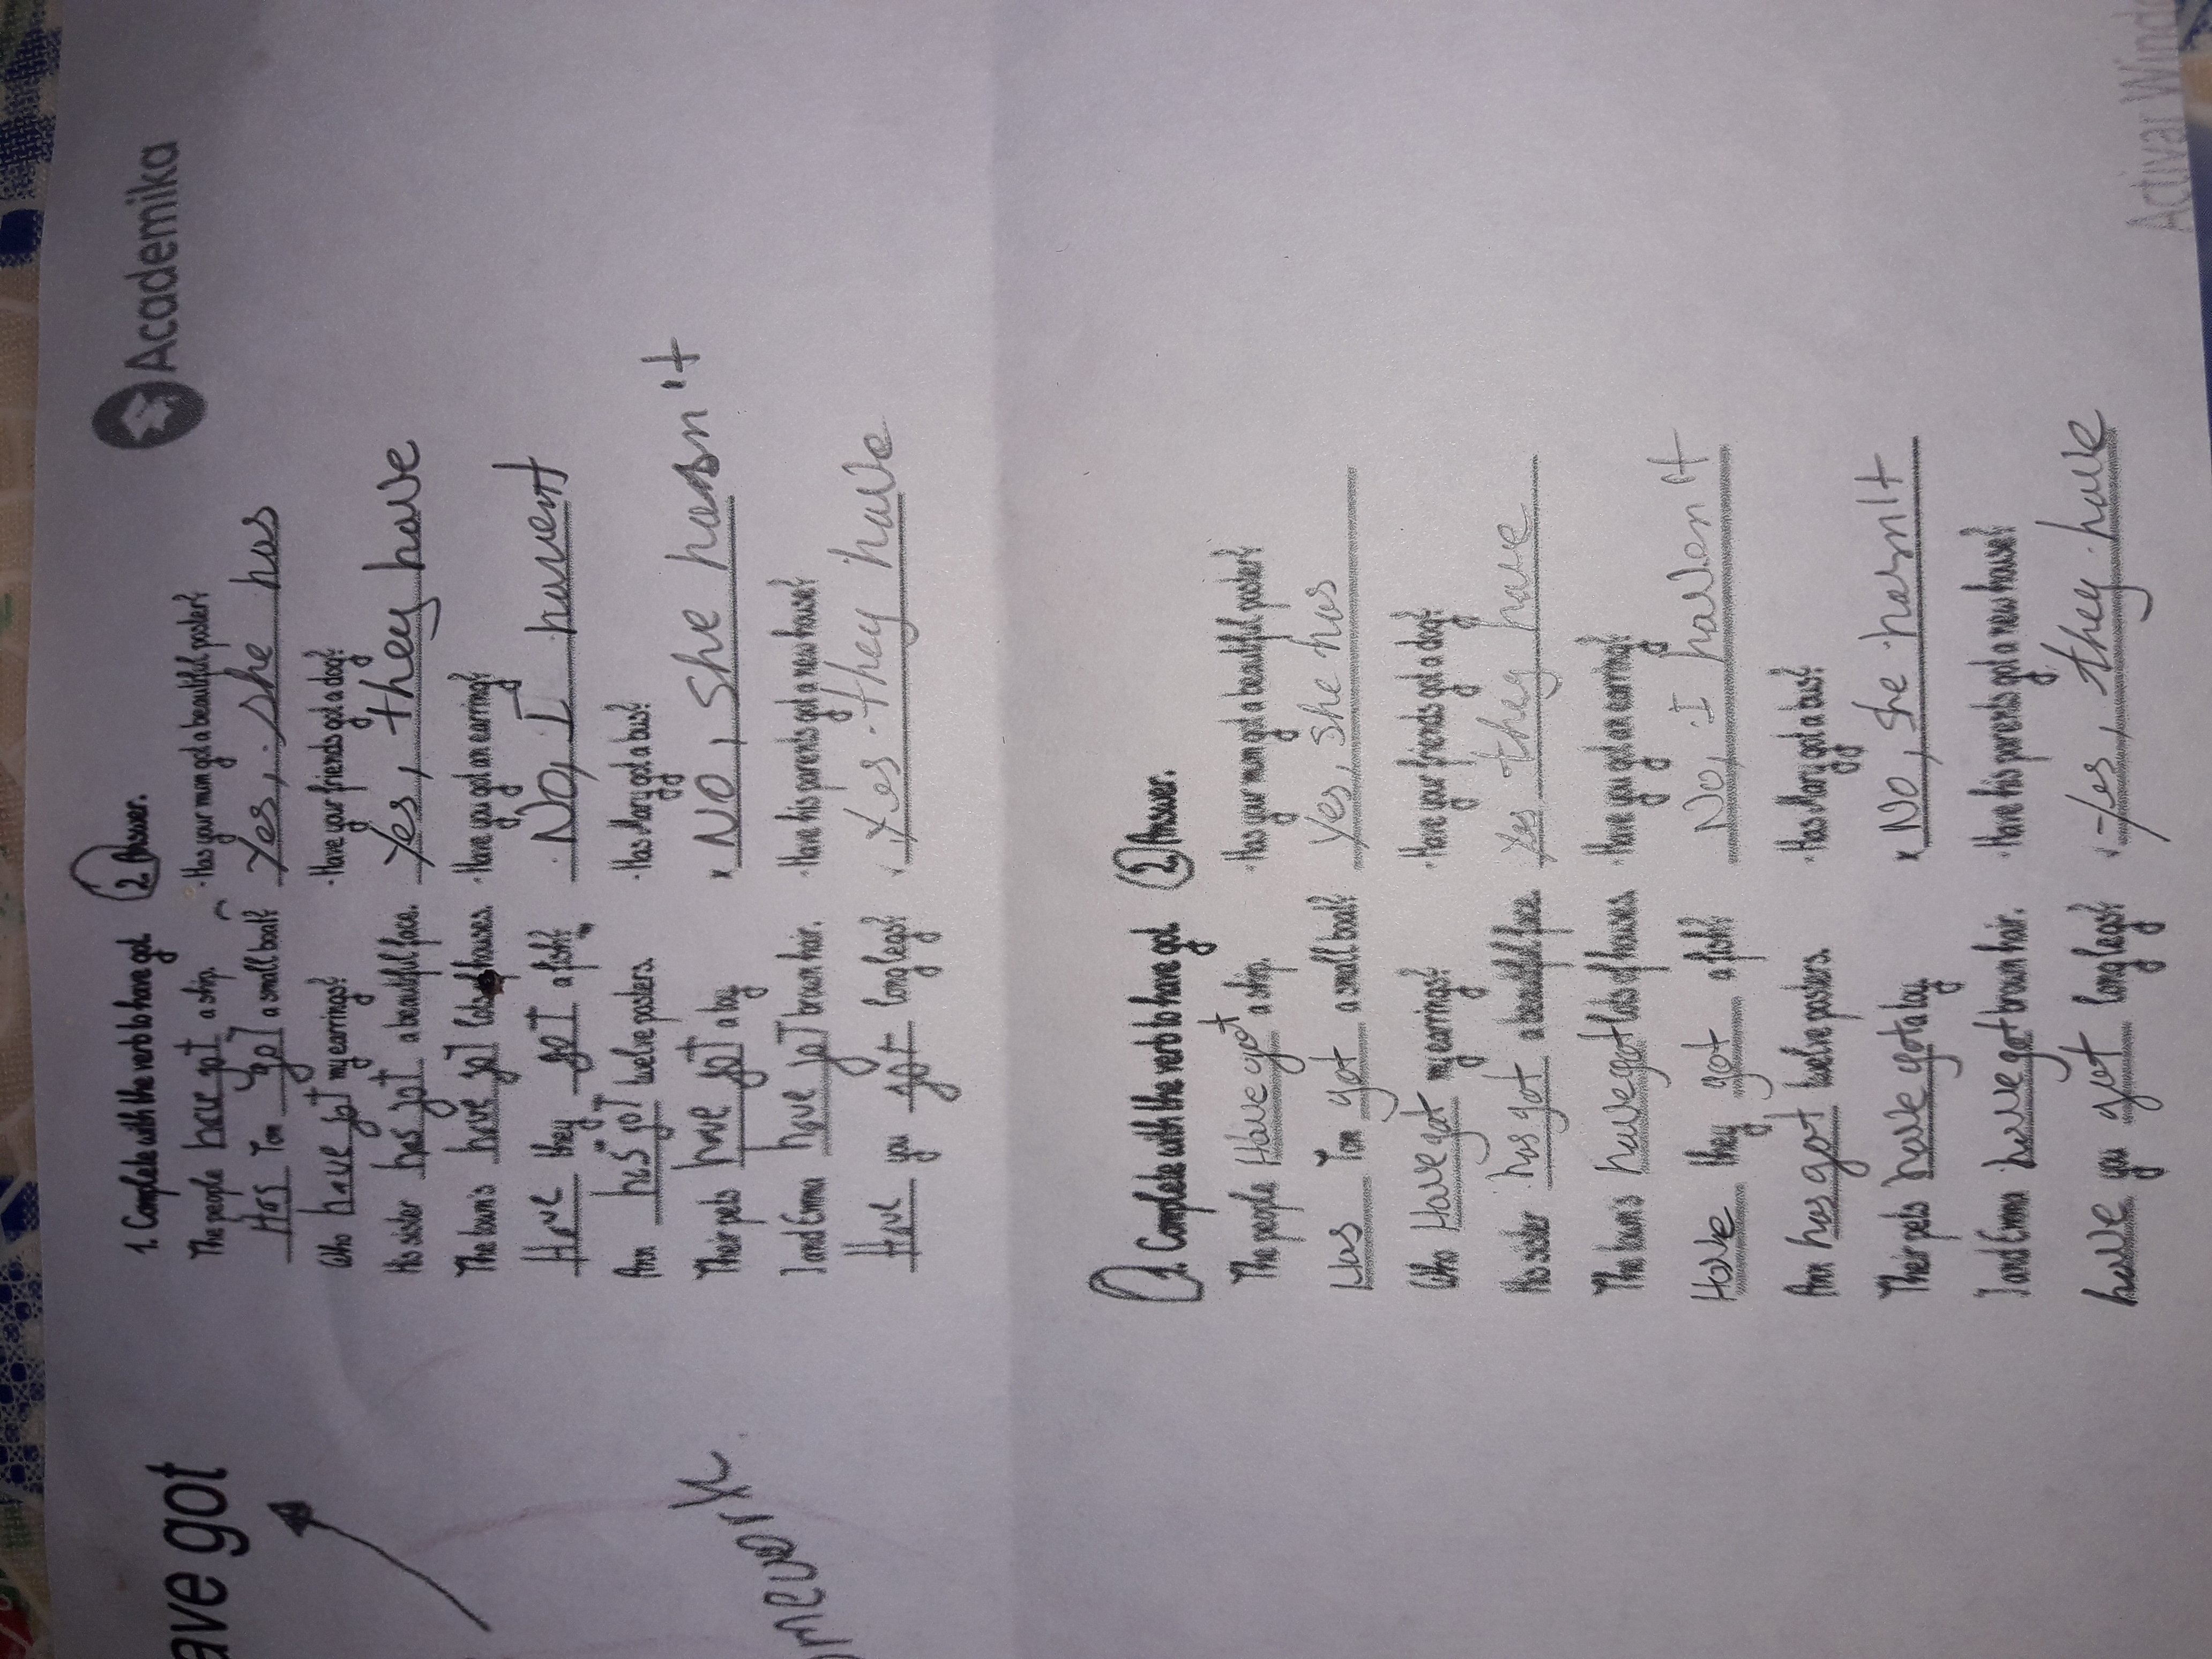 ave got
Academika
1. Complete with the verb to have got.
The people have got a ship.
Has Tom got a small boat?
Who have got my earrings?
His sister has got a beautiful face.
The town's have got lots of houses.
Have they got a fish?
Ann has got twelve posters.
Their pets have got a bag
I and Emma have got brown hair.
Have you got long legs?
2. Answer.
·Has your mum got a beautiful poster?
Yes, she has
·Have your friends got a dog?
Yes, they have
·Have you got an earring?
No, I havent
·Has Mary got a bus?
x No, she hasn't
·Have his parents got a new house?
Yes. they have
omework
1. Complete with the verb to have got.
The people Have got a ship.
Has Tom got a small boat?
Who Have got my earrings?
His sister has got a beautiful face.
The town's have got lots of houses
Have they got a fish?
Ann has got twelve posters.
Their pets have got a bag
I and Emma have got brown hair.
have you got long legs?
2. Answer.
·Has your mum got a beautiful poster?
Yes, she has
·Have your friends got a dog?
Yes they have
·Have you got an earring?
No, I haven't
·Has Mary got a bus?
x No, she hasn't
·Have his parents got a new house?
Yes, they have
Activar Wind